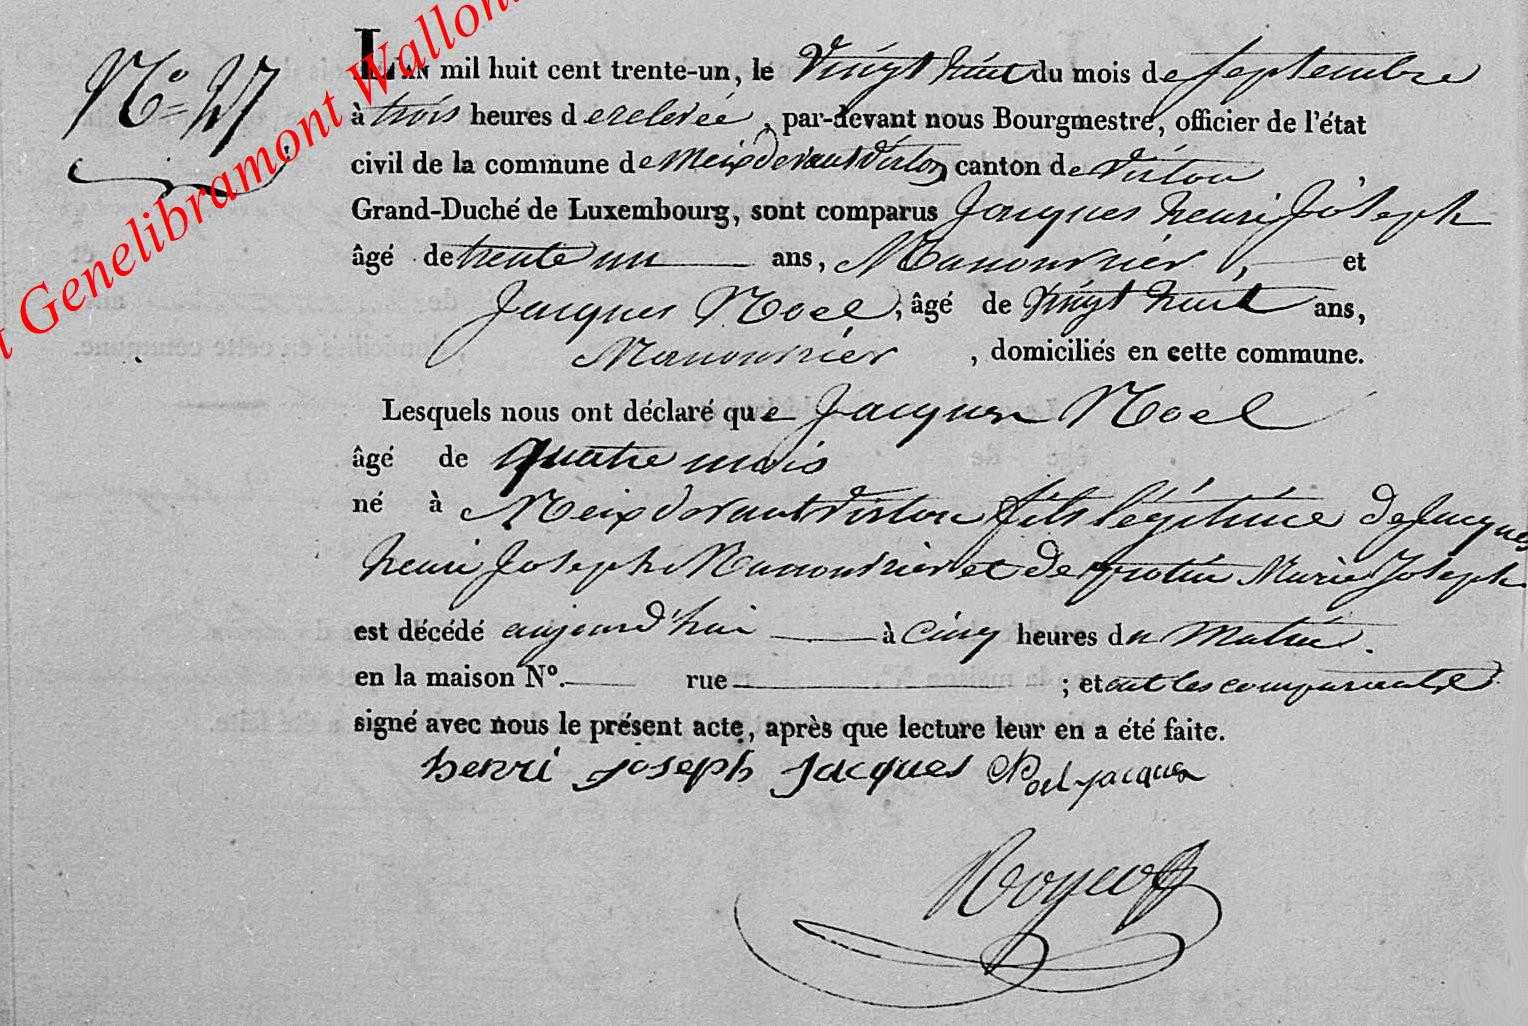 t Genelibramont Wallon
N°
L'AN mil huit cent trente-un, le Vingt huit du mois de Septembre
à trois heures de relevée, par-devant nous Bourgmestre, officier de l'état
civil de la commune de Meix devant Virton canton de Virton
Grand-Duché de Luxembourg, sont comparus Jacques henri Joseph
âgé de trente un ans, Manouvrier, et
Jacques Noel, âgé de Vingt huit ans,
Manouvrier, domiciliés en cette commune.
Lesquels nous ont déclaré que Jacques Noel
âgé de quatre mois
né à Meix devant Virton fils légitime de Jacques
henri Joseph Manouvrier et de Marie Joseph
est décédé aujourd'hui à Cinq heures du Matin.
en la maison N°. rue ; et ont les comparants
signé avec nous le présent acte, après que lecture leur en a été faite.
henri joseph jacques Noel jacques